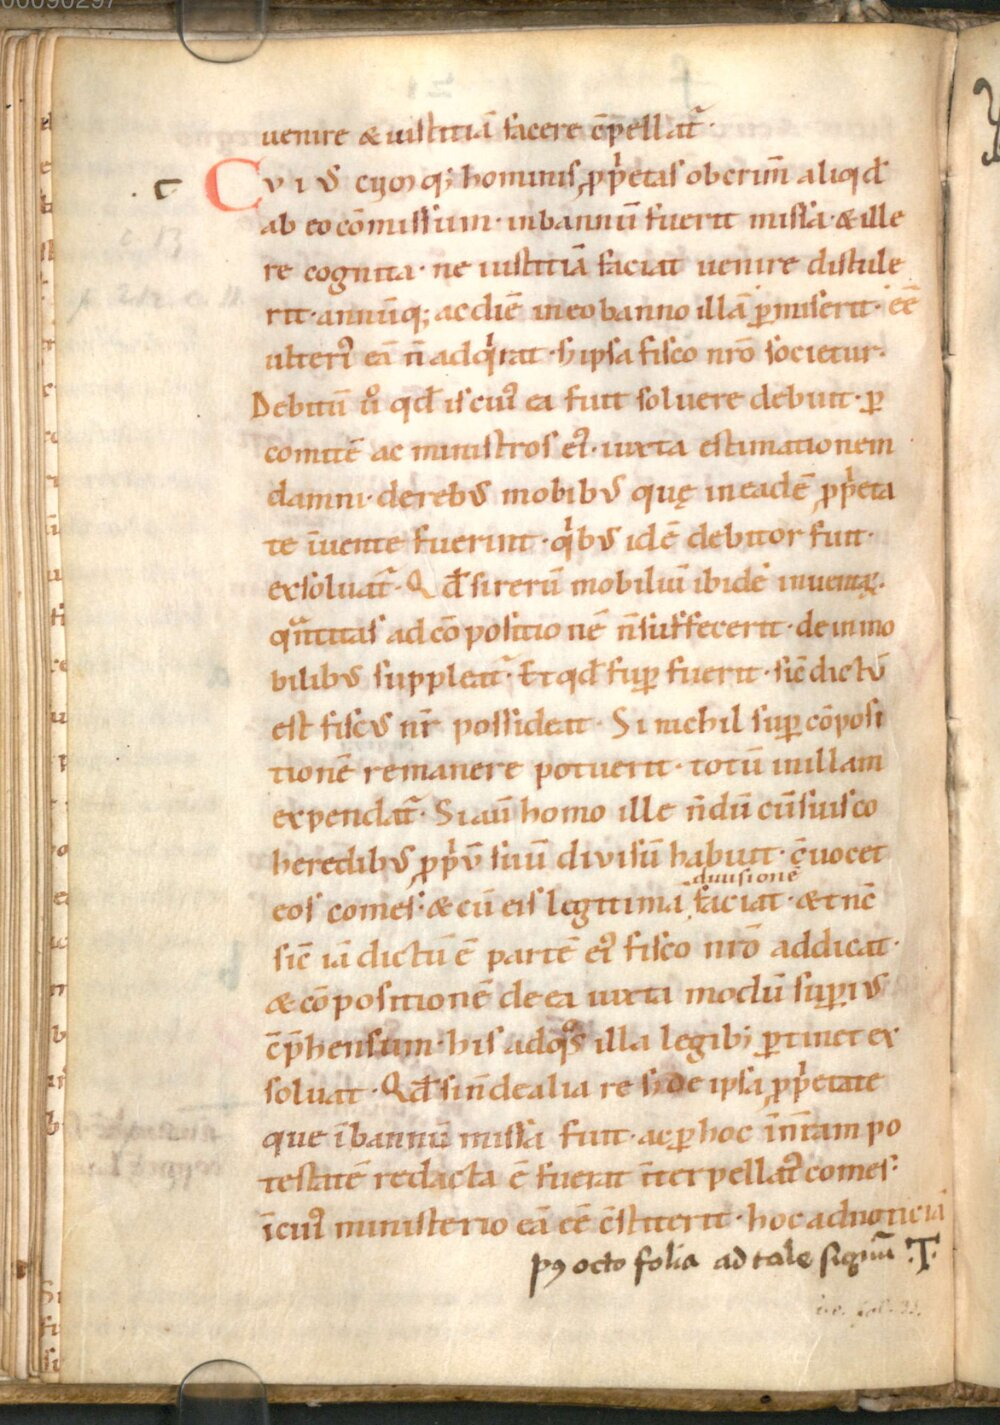 00090297
uenire & iustitiā facere cōpellat᷑·
c Cuiuscūq; hominis ꝓp̍etas ob crim̄ aliqd̄
ab eo cōmissum· in bannū fuerit missa· & ille
re cognita· ne iustitiā faciat uenire distule
rit· annūq; ac diē in eo banno illā ꝑmiserit· eē
ulteri᷒ eā n̄ adq̍rat· s; ipsa fisco nr̄o societur·
Debitū ů qd̄ is cui᷒ ea fuit soluere debuit· ꝑ
comitē ac ministros ei᷒· iuxta estimationem
damni· de reb᷒ mobib᷒ quę in eadē ꝓp̍eta
te īuente fuerint· q̍b᷒ idē debitor fuit·
exsoluat᷑· Qd̄ si rerū mobiliū ibidē inuentaꝝ·
qⁿtitas ad cōpositionē n̄ suffecerit· de inmo
bilib᷒ suppleat᷑· Et qd̄ suꝑ fuerit· sic̄ dictū
est fisc᷒ nr̄ possideat· Si nichil suꝑ cōposi
tionē remanere potuerit· totū in illam
expendat᷑· Si aū homo ille n̄dū cū suis co
heredib᷒ ꝓp̍ū suū diuisū habuit· c̄uocet
diuisionē
eos comes· & cū eis legitimā faciat· & tnc̄
sic̄ iā dictū ē partē ei᷒ fisco nr̄o addicat·
& cōpositionē de ea iuxta modū suꝑi᷒
c̄p̄hensum· his ad qͦs illa legib; ꝑtinet ex
soluat· Qd̄ si n̄ de alia re s; de ipsa ꝓp̍etate
que ī bannū missa fuit· ac ꝑ hoc ī nr̄am po
testatē redacta ē fuerat īterpellat᷒ comes·
ī cui᷒ ministerio eā eē c̄stiterit· hoc ad noticiā
pꝰ octo folia ad tale signū ·T·